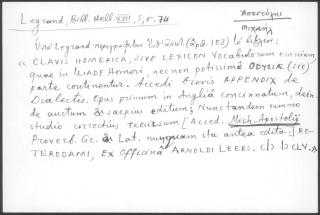 Legrand, Bibl. Hell XVII, 5, σ. 74
Ἀποστόλης
Μιχαὴλ
Ὑπὸ Legrand περιγράφεται (ἀρ. 103) ὡς ἑξῆς:
« CLAVIS HOMERICA, SIVE LEXICON Vocabulorum omnium,
quae in ILIADE Homeri, necnon potissimâ ODYSSEÆ (sic)
parte continentur. Accedi Brevis APPENDIX de
Dialectis. Opus primum in Angliâ concinnatum, dein
de auctum & saepius editum; Nunc tandem summo
studio correctius recursum [Acced. Mich. Apostolii
Proverb. Gr. & Lat. nunquam ita antea edita.] RO-
TERODAMI, Ex Officinâ ARNOLDI LEERS. CIƆ IƆ CLV. »